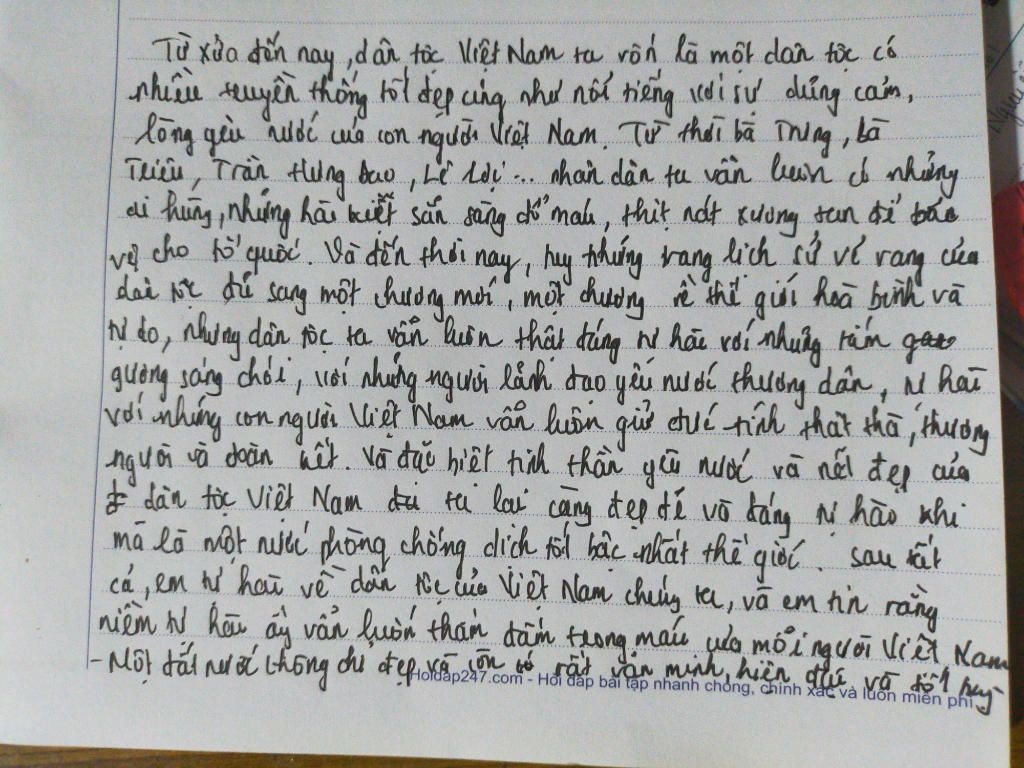 Từ xửa đến nay, dân tộc Việt Nam ta vốn là một dân tộc có
nhiều truyền thống tốt đẹp cũng như nổi tiếng với sự dũng cảm,
lòng yêu nước của con người Việt Nam. Từ thời bà Trưng, bà
Triệu, Trần Hưng Đạo, Lê Lợi... nhân dân ta vẫn luôn có những
anh hùng, những hào kiệt sẵn sàng đổ máu, thịt nát xương tan để
vệ cho tổ quốc. Và đến thời nay, tuy những trang lịch sử vẻ vang của
dân tộc đã sang một chương mới, một chương về thế giới hoà bình và
tự do, nhưng dân tộc ta vẫn luôn thật đáng tự hào với những tấm
gương sáng chói, với những người lãnh đạo yêu nước thương dân, tự hào
với những con người Việt Nam vẫn luôn giữ đức tính thật thà, thương
người và đoàn kết. Và đặc biệt tinh thần yêu nước và nét đẹp của
dân tộc Việt Nam ta lại càng đẹp đẽ và đáng tự hào khi
mà là một nước phòng chống dịch tốt bậc nhất thế giới. Sau tất
cả, em tự hào về dân tộc của Việt Nam chúng ta, và em tin rằng
niềm tự hào ấy vẫn luôn thấm đẫm trong máu của mỗi người Việt Nam
- Một đất nước không chỉ đẹp và còn có rất văn minh, hiện đại và
Hoidap247.com - Hỏi đáp bài tập nhanh chóng, chính xác và luôn miễn phí